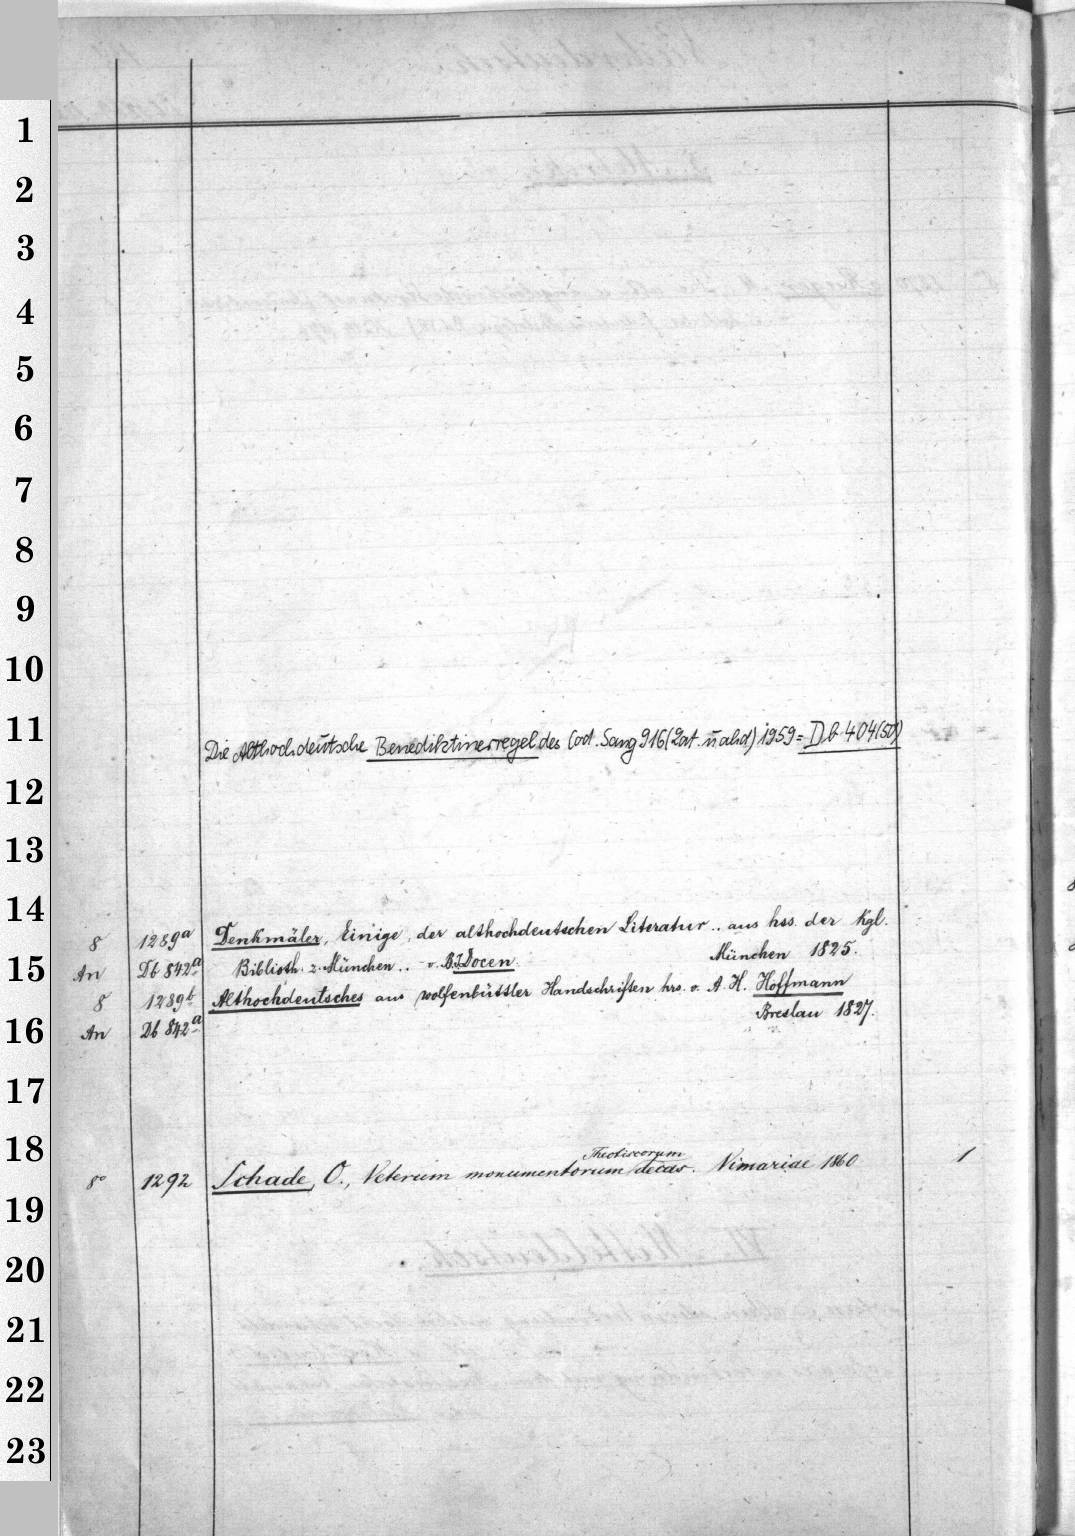 1
2
3
4
5
6
7
8
9
10
11
Die Althochdeutsche Benediktinerregel des Cod. Sang 916 (Lat. u ahd) 1959 = Db 404(50)
12
13
14
8 1289a Denkmäler, Einige, der althochdeutschen Literatur .. aus hss. der Kgl.
15
An Db 842a Biblioth. z. München .. v. B.J. Docen. München 1825.
8 1289b Althochdeutsches aus wolfenbüttler Handschriften hrs. v. A. H. Hoffmann
16
An Db 842a Breslau 1827.
17
18
Theotiscorum
8° 1292 Schade, O., Veterum monumentorum decas. Vimariae 1860 1
19
20
21
22
23